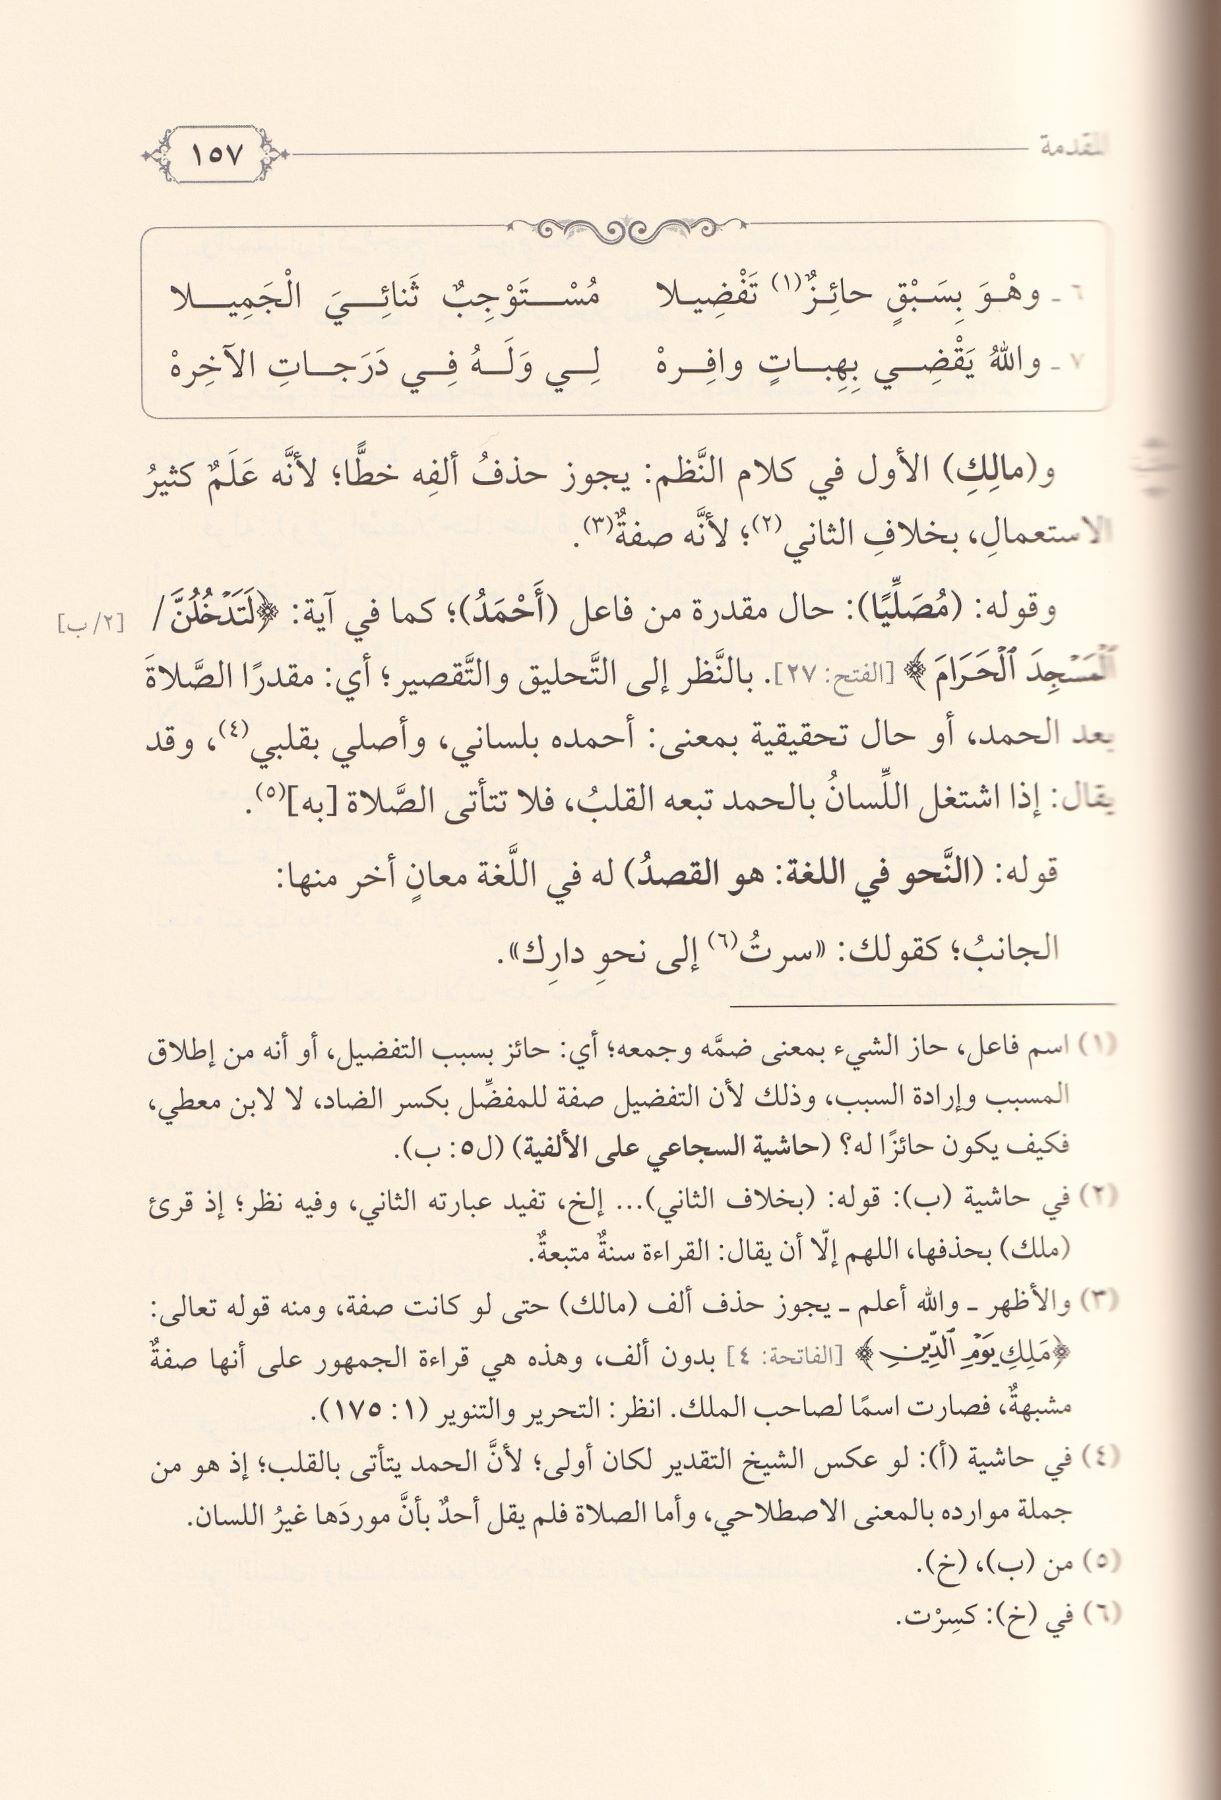 المقدمة
١٥٧
٦ ـ وهْوَ بِسَبْقٍ حائِزٌ(١) تَفْضِيلا مُسْتَوْجِبٌ ثَنائِيَ الْجَمِيلا
٧ ـ واللهُ يَقْضِي بِهِباتٍ وافِرهْ لِي وَلَهُ فِي دَرَجاتِ الآخِرهْ
و(مالِكِ) الأول في كلام النَّظم: يجوز حذفُ ألفِه خطًّا؛ لأنَّه عَلَمٌ كثيرُ
الاستعمالِ، بخلافِ الثاني(٢)؛ لأنَّه صفةٌ(٣).
وقوله: (مُصَلِّيًا): حال مقدرة من فاعل (أَحْمَدُ)؛ كما في آية: ﴿لَتَدْخُلُنَّ/ [٢/ب]
ٱلْمَسْجِدَ ٱلْحَرَامَ﴾ [الفتح: ٢٧]. بالنَّظر إلى التَّحليق والتَّقصير؛ أي: مقدرًا الصَّلاةَ
بعد الحمد، أو حال تحقيقية بمعنى: أحمده بلساني، وأصلي بقلبي(٤)، وقد
يقال: إذا اشتغل اللِّسانُ بالحمد تبعه القلبُ، فلا تتأتى الصَّلاة [به](٥).
قوله: (النَّحو في اللغة: هو القصدُ) له في اللَّغة معانٍ أخر منها:
الجانبُ؛ كقولك: «سرتُ(٦) إلى نحوِ دارِك».
(١) اسم فاعل، حاز الشيء بمعنى ضمَّه وجمعه؛ أي: حائز بسبب التفضيل، أو أنه من إطلاق
المسبب وإرادة السبب، وذلك لأن التفضيل صفة للمفضِّل بكسر الضاد، لا لابن معطي،
فكيف يكون حائزًا له؟ (حاشية السجاعي على الألفية) (ل٥: ب).
(٢) في حاشية (ب): قوله: (بخلاف الثاني)... إلخ، تفيد عبارته الثاني، وفيه نظر؛ إذ قرئ
(ملك) بحذفها، اللهم إلّا أن يقال: القراءة سنةٌ متبعةٌ.
(٣) والأظهر ـ والله أعلم ـ يجوز حذف ألف (مالك) حتى لو كانت صفة، ومنه قوله تعالى:
﴿مَلِكِ يَوْمِ ٱلدِّينِ﴾ [الفاتحة: ٤] بدون ألف، وهذه هي قراءة الجمهور على أنها صفةٌ
مشبهةٌ، فصارت اسمًا لصاحب الملك. انظر: التحرير والتنوير (١: ١٧٥).
(٤) في حاشية (أ): لو عكس الشيخ التقدير لكان أولى؛ لأنَّ الحمد يتأتى بالقلب؛ إذ هو من
جملة موارده بالمعنى الاصطلاحي، وأما الصلاة فلم يقل أحدٌ بأنَّ موردَها غيرُ اللسان.
(٥) من (ب)، (خ).
(٦) في (خ): كسِرْت.